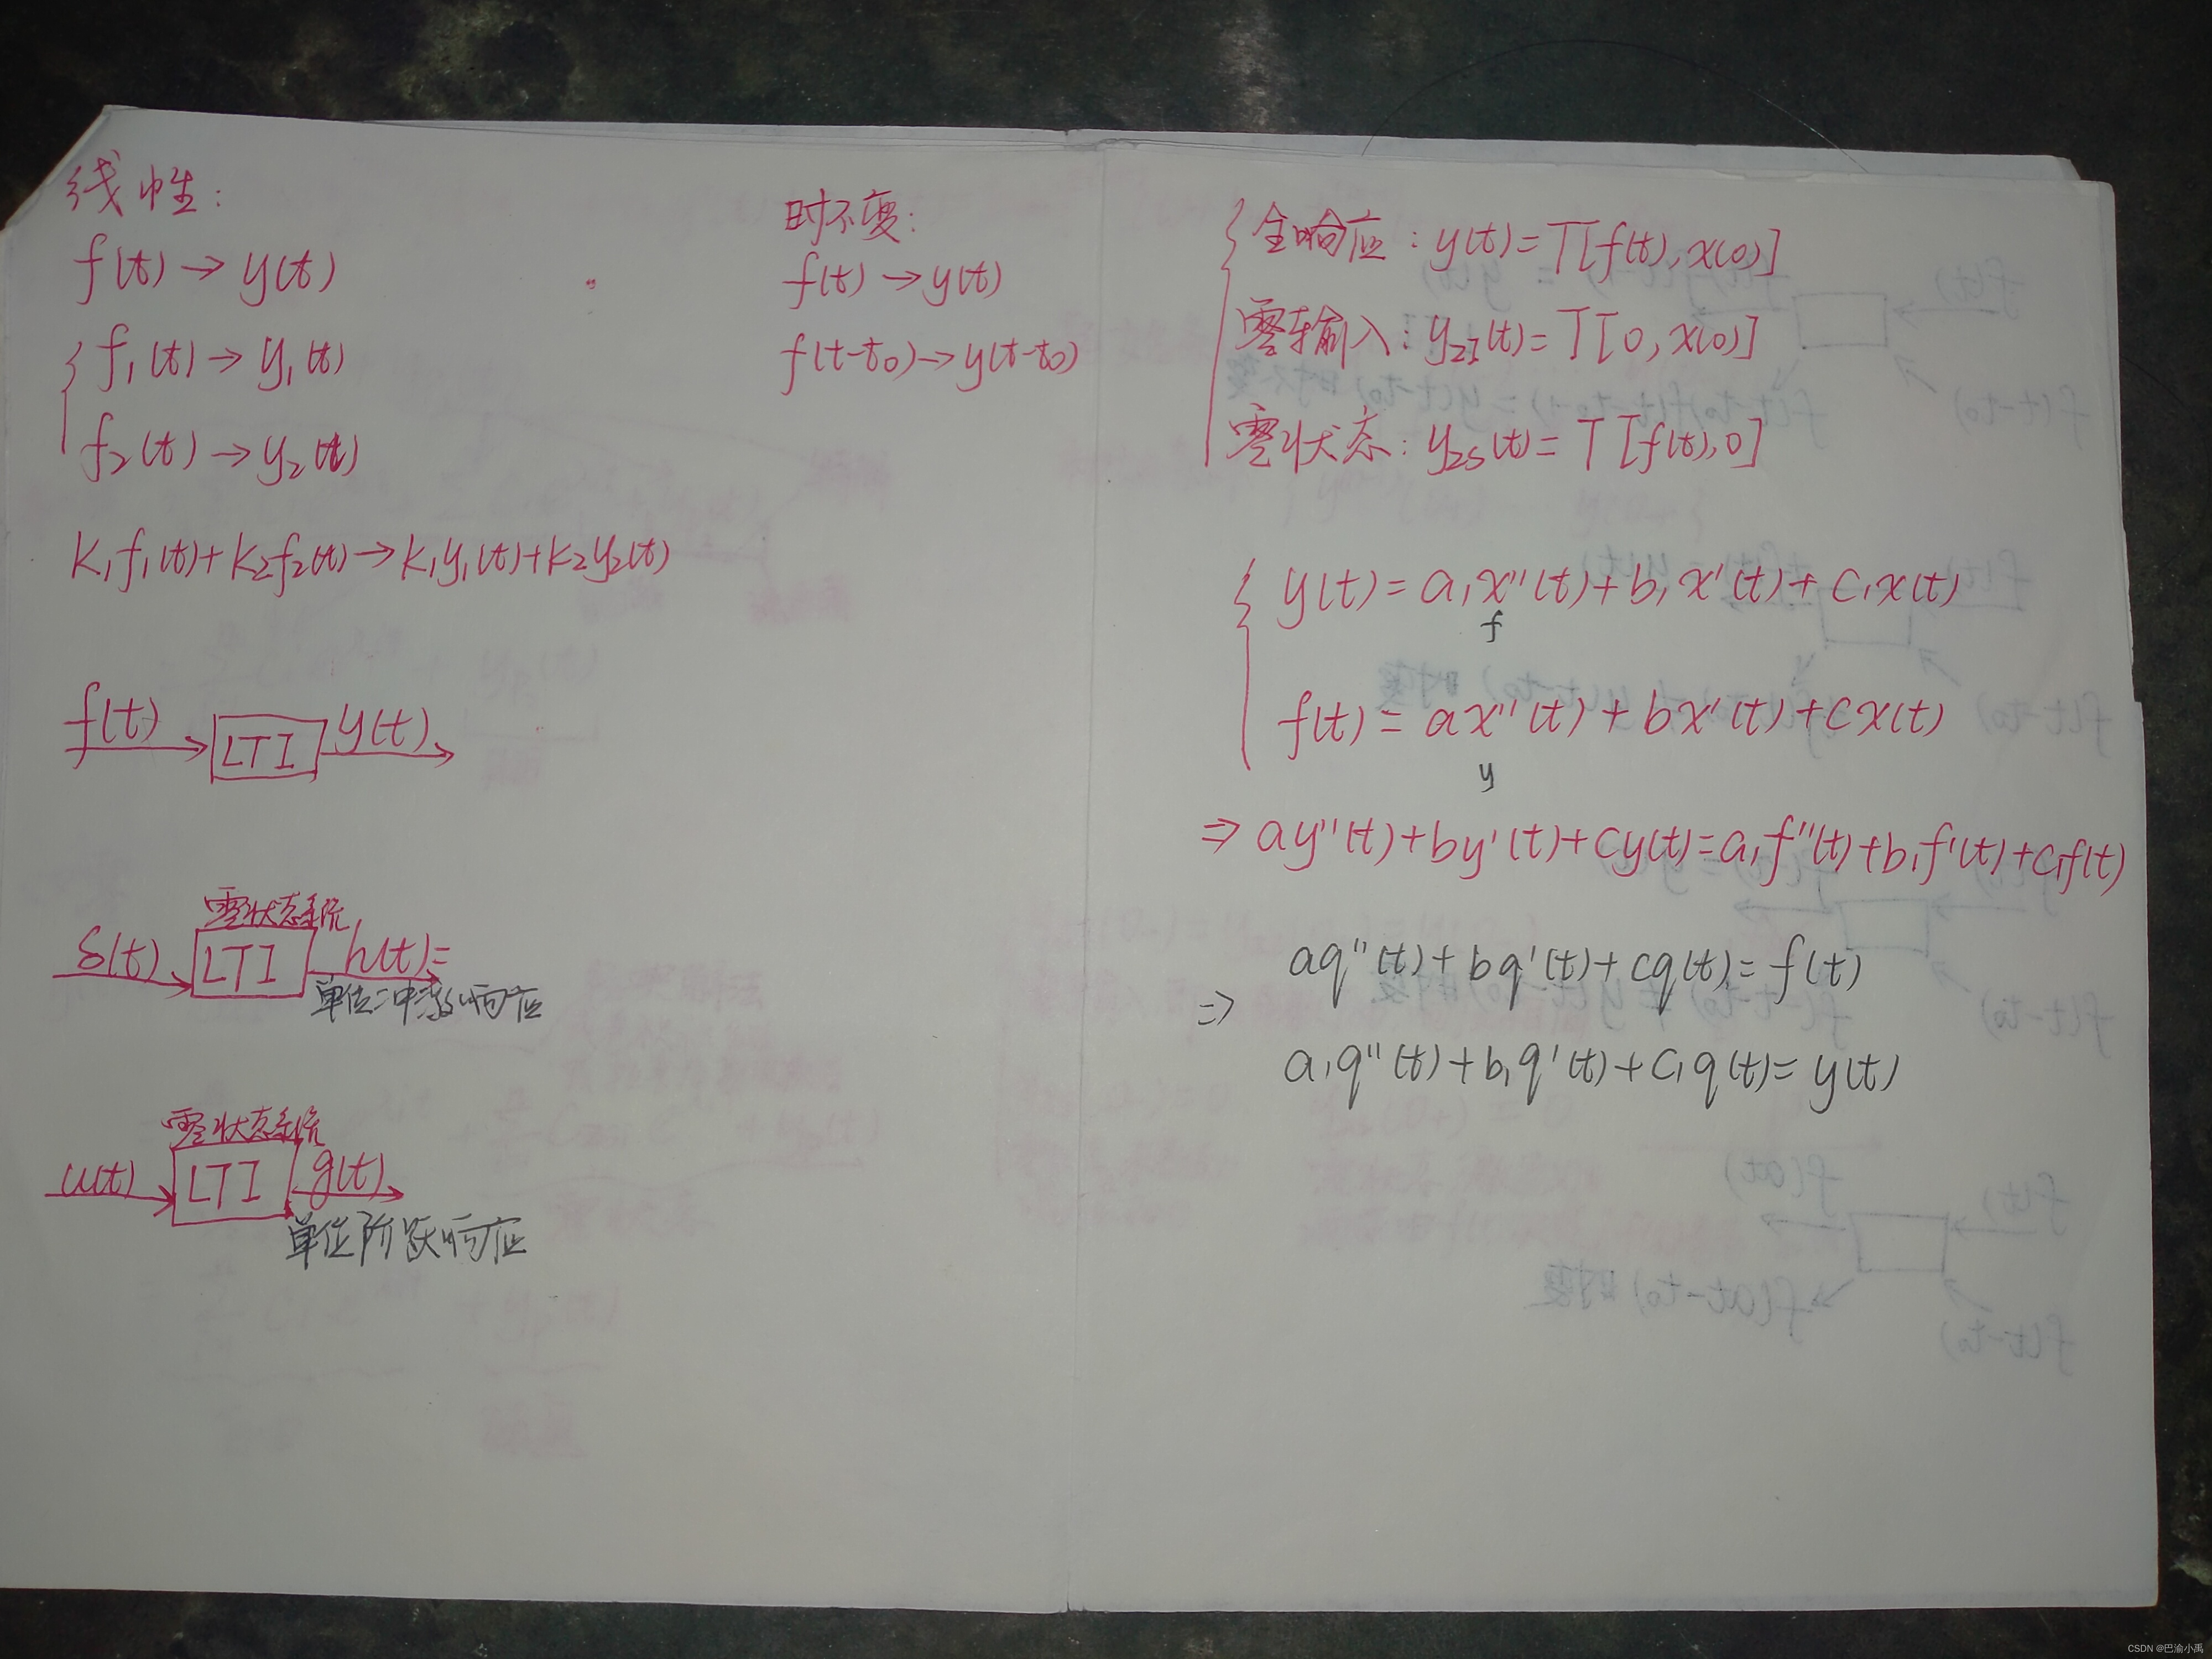 线性:
f(t)→y(t)
f₁(t)→y₁(t)
f₂(t)→y₂(t)
k₁f₁(t)+k₂f₂(t)→k₁y₁(t)+k₂y₂(t)
f(t) LTI y(t)
零状态系统
δ(t) LTI h(t)=
单位冲激响应
零状态系统
u(t) LTI g(t)
单位阶跃响应
时不变:
f(t)→y(t)
f(t-t₀)→y(t-t₀)
全响应: y(t)=T[f(t),x(0)]
零输入: yzI(t)=T[0,x(0)]
零状态: yzs(t)=T[f(t),0]
y(t)=a₁x''(t)+b₁x'(t)+c₁x(t)
f
f(t)=ax''(t)+bx'(t)+cx(t)
y
⇒ay''(t)+by'(t)+cy(t)=a₁f''(t)+b₁f'(t)+c₁f(t)
aq''(t)+bq'(t)+cq(t)=f(t)
⇒
a₁q''(t)+b₁q'(t)+c₁q(t)=y(t)
CSDN @巴渝小禹